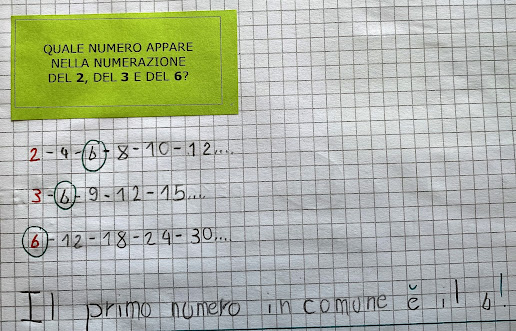 QUALE NUMERO APPARE
NELLA NUMERAZIONE
DEL 2, DEL 3 E DEL 6?
2-4-6-8-10-12....
3-6-9-12-15....
6-12-18-24-30....
Il primo numero in comune è il 6!